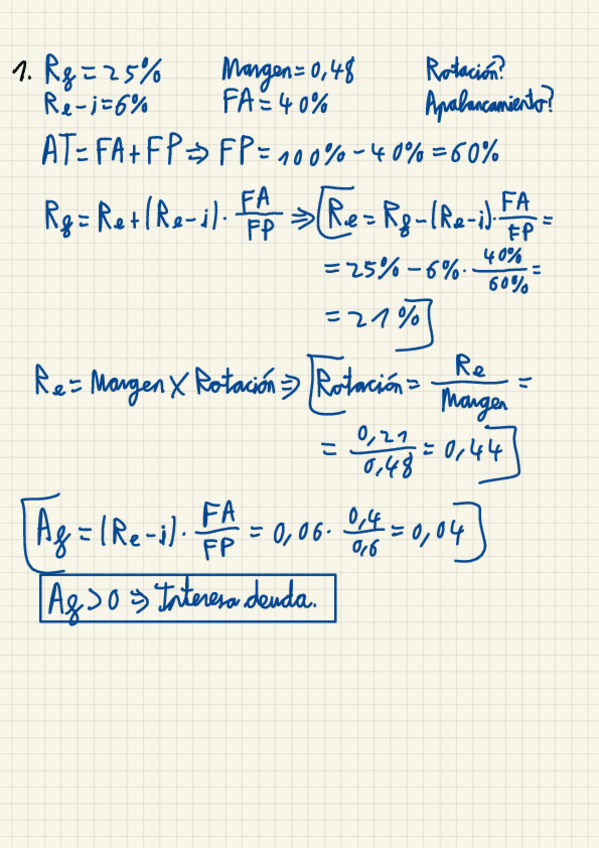 1. Rf = 25% Margen = 0,48 Rotación?
Re - i = 6% FA = 40% Apalancamiento?
AT = FA + FP ⇒ FP = 100% - 40% = 60%
Rf = Re + (Re - i) · FA/FP ⇒ Re = Rf - (Re - i) · FA/FP =
= 25% - 6% · 40%/60% =
= 21%
Re = Margen X Rotación ⇒ Rotación = Re/Margen =
= 0,21/0,48 = 0,44
Af = (Re - i) · FA/FP = 0,06 · 0,4/0,6 = 0,04
Af > 0 ⇒ Interesa deuda.